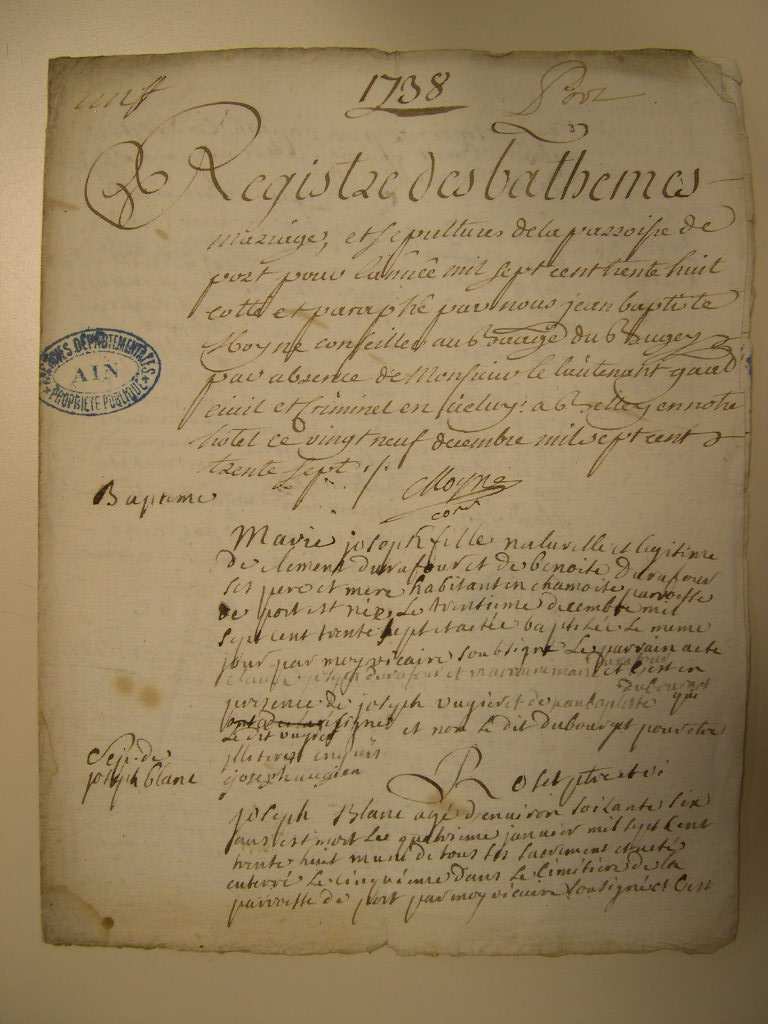 1738
Port
Registre des bathemes
mariages, et sepultures de la parroisse de
port pour lannée mil sept cent trente huit
cotté et paraphé par nous jean baptiste
Moyne conseiller au Bailliage du Bugey
par absence de Monsieur le lieutenant gnal
civil et Criminel en iceluy : a Belley en notre
hotel ce vingt neuf decembre mil sept cent
trente sept ./.
Moyne
ARCHIVES DÉPARTEMENTALES
AIN
PROPRIÉTÉ PUBLIQUE
Bapteme
Marie joseph fille naturelle et legitime
de clement durafour et de benoite durafour
ses pere et mere habitant en chamoite parroisse
de port est née le trentieme decembre mil
sept cent trente sept et a etée baptisée le meme
jour par moy vicaire soubsigné le parrain a ete
claude joseph durafour et marraine marie
et c'est en
presence de joseph vugier et de jean baptiste dubourget qui
signer et non le dit dubourget pour etre
illeteres enquis
joseph
Sep. de
joseph blanc
joseph Blanc agé d'environ soisante six
ans est mort le quatrieme janvier mil sept cent
trente huit muni de tous les sacrement et a eté
enterré le cinquieme dans le cimitiere de la
parroisse de port par moy vicaire sousigné et c'est